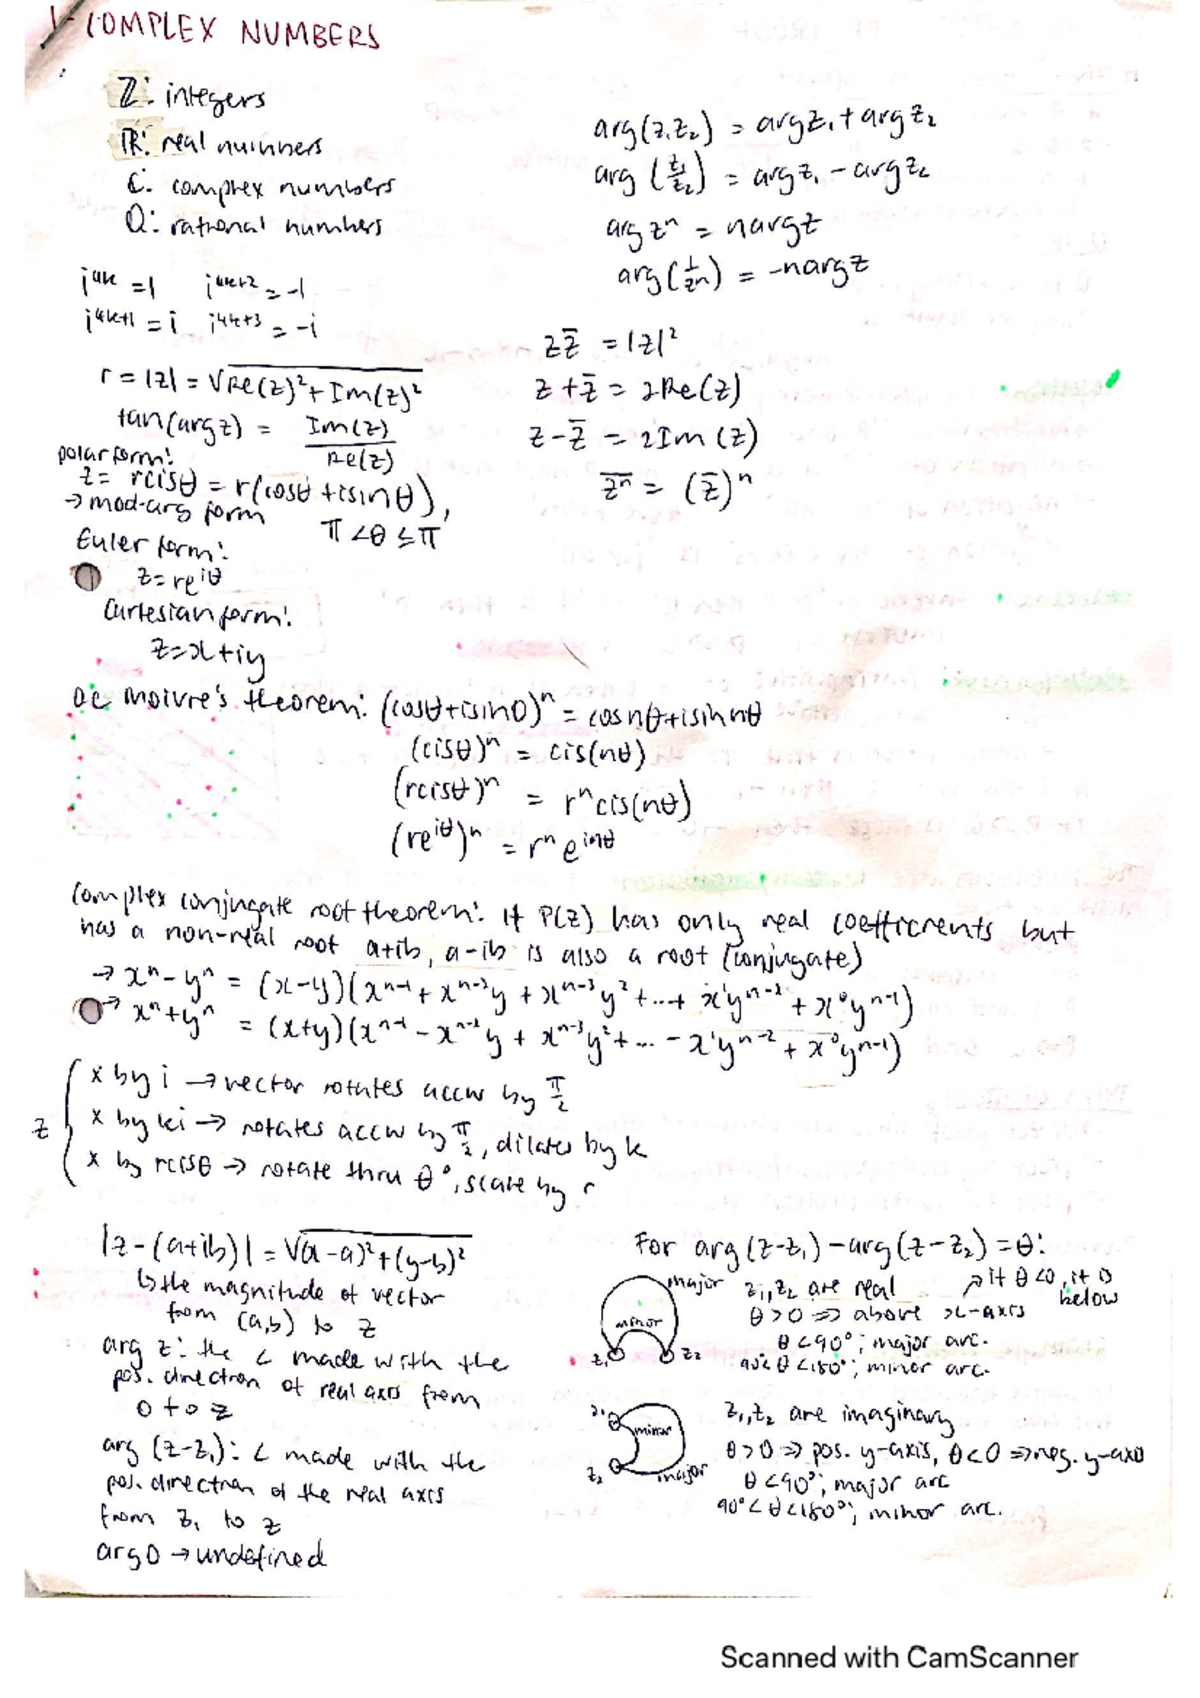 1- COMPLEX NUMBERS
ℤ: integers
ℝ: real numbers
ℂ: complex numbers
Q: rational numbers
i^4k = 1 i^4k+2 = -1
i^4k+1 = i i^4k+3 = -i
r = |z| = √Re(z)² + Im(z)²
tan(argz) = Im(z)/Re(z)
polar form:
z = rcisθ = r(cosθ + isinθ),
→ mod-arg form
π < θ ≤ π
Euler form:
z = re^iθ
Cartesian form:
z = x + iy
arg(z₁z₂) = argz₁ + argz₂
arg(z₁/z₂) = argz₁ - argz₂
argzⁿ = nargz
arg(1/zⁿ) = -nargz
zz̄ = |z|²
z + z̄ = 2Re(z)
z - z̄ = 2Im(z)
z̄ⁿ = (z̄)ⁿ
De Moivre's theorem: (cosθ+isinθ)ⁿ = cosnθ+isinnθ
(cisθ)ⁿ = cis(nθ)
(rcisθ)ⁿ = rⁿcis(nθ)
(re^iθ)ⁿ = rⁿe^inθ
Complex conjugate root theorem: If P(z) has only real coefficients but
has a non-real root a+ib, a-ib is also a root (conjugate)
→ xⁿ - yⁿ = (x-y)(xⁿ⁻¹ + xⁿ⁻²y + xⁿ⁻³y² + ... + x¹yⁿ⁻² + x⁰yⁿ⁻¹)
→ xⁿ + yⁿ = (x+y)(xⁿ⁻¹ - xⁿ⁻²y + xⁿ⁻³y² + ... - x¹yⁿ⁻² + x⁰yⁿ⁻¹)
z { x by i → vector rotates accw by π/2
x by ki → rotates accw by π/2, dilates by k
x by rcisθ → rotate thru θ°, scale by r
|z - (a+ib)| = √(x-a)² + (y-b)²
↳ the magnitude of vector
from (a,b) to z
arg z: the ∠ made with the
pos. direction of real axis from
0 to z
arg (z-z₁): ∠ made with the
pos. direction of the real axis
from z₁ to z
arg0 → undefined
For arg(z-z₁) - arg(z-z₂) = θ:
major
minor
z₁ z₂
z₁,z₂ are real
↗ if θ<0, it is
below
θ > 0 ⇒ above x-axis
θ < 90°; major arc.
90 < θ < 180°; minor arc.
z₁
minor
z₂
major
z₁,z₂ are imaginary
θ > 0 ⇒ pos. y-axis, θ < 0 ⇒ neg. y-axis
θ < 90°; major arc
90° < θ < 180°; minor arc.
Scanned with CamScanner